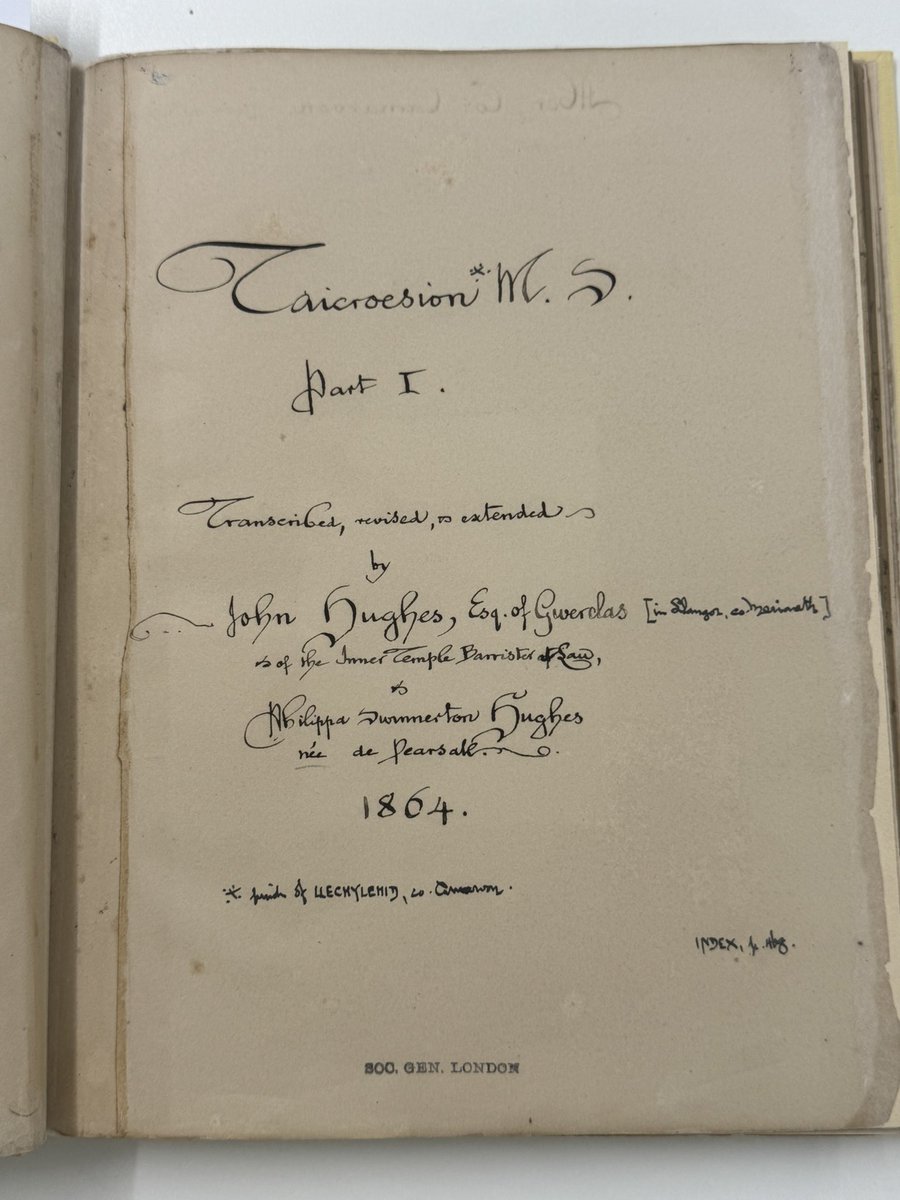 Taicroesion * M. S.
Part I.
Transcribed, revised, & extended
by
John Hughes, Esq. of Gwerclas [in Llangar, co. Merioneth]
& of the Inner Temple Barrister at Law,
&
Philippa Swinnerton Hughes
née de Pearsall.
1864.
* parish of LLECHYLCHID, co. Carnarvon.
INDEX, p.
SOC. GEN. LONDON